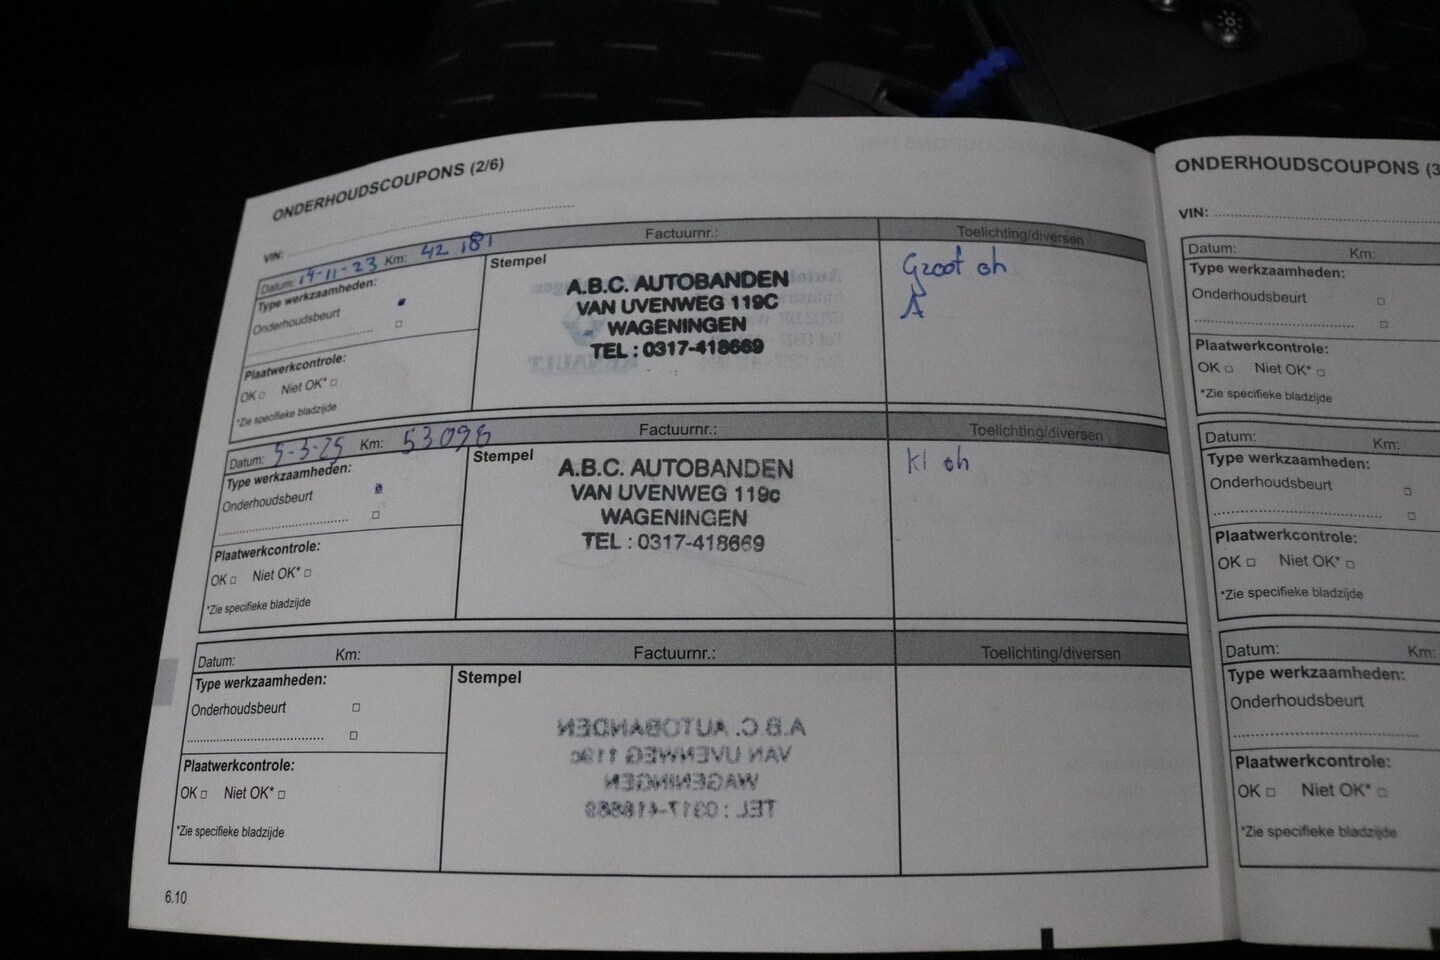 ONDERHOUDSCOUPONS (2/6)
VIN:
Datum: 14-11-23 Km: 42 181 Factuurnr.: Toelichting/diversen
Type werkzaamheden:
Onderhoudsbeurt
Plaatwerkcontrole:
OK □ Niet OK* □
*Zie specifieke bladzijde
Stempel
A.B.C. AUTOBANDEN
VAN UVENWEG 119C
WAGENINGEN
TEL : 0317-418669
Groot oh
A
Datum: 5-3-25 Km: 53098 Factuurnr.: Toelichting/diversen
Type werkzaamheden:
Onderhoudsbeurt
Plaatwerkcontrole:
OK □ Niet OK* □
*Zie specifieke bladzijde
Stempel
A.B.C. AUTOBANDEN
VAN UVENWEG 119c
WAGENINGEN
TEL : 0317-418669
Kl oh
Datum: Km: Factuurnr.: Toelichting/diversen
Type werkzaamheden:
Onderhoudsbeurt □
□
Plaatwerkcontrole:
OK □ Niet OK* □
*Zie specifieke bladzijde
Stempel
A.B.C. AUTOBANDEN
VAN UVENWEG 119c
WAGENINGEN
TEL : 0317-418669
6.10
ONDERHOUDSCOUPONS (3
VIN:
Datum: Km:
Type werkzaamheden:
Onderhoudsbeurt □
□
Plaatwerkcontrole:
OK □ Niet OK* □
*Zie specifieke bladzijde
Datum: Km:
Type werkzaamheden:
Onderhoudsbeurt □
□
Plaatwerkcontrole:
OK □ Niet OK* □
*Zie specifieke bladzijde
Datum: Km:
Type werkzaamheden:
Onderhoudsbeurt
Plaatwerkcontrole:
OK □ Niet OK* □
*Zie specifieke bladzijde